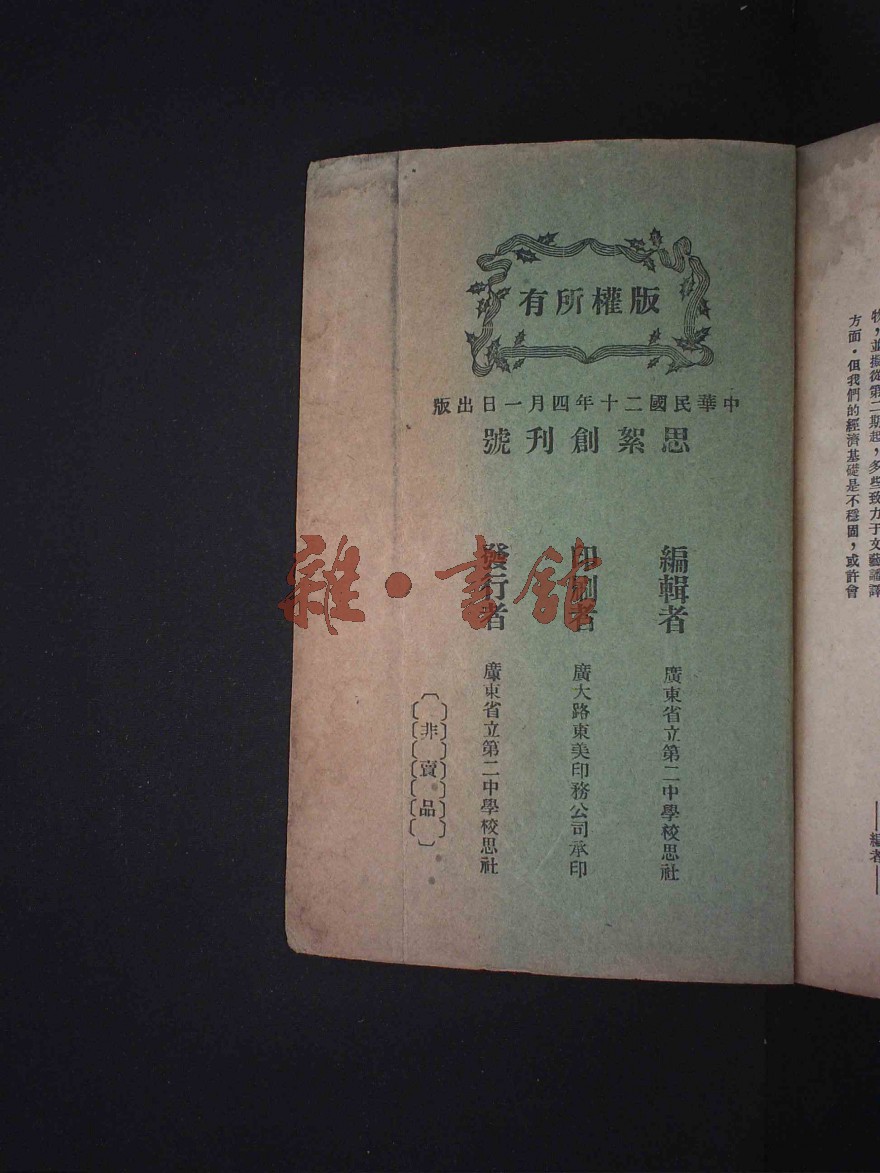 版權所有
中華民國二十年四月一日出版
思絮創刊號
編輯者 廣東省立第二中學校思社
印刷者 廣大路東美印務公司承印
發行者 廣東省立第二中學校思社
非賣品
雜·書館
物，並擬從第二期起，多些致力于文藝論譯
方面。但我們的經濟基礎是不穩固，或許會
——編者——